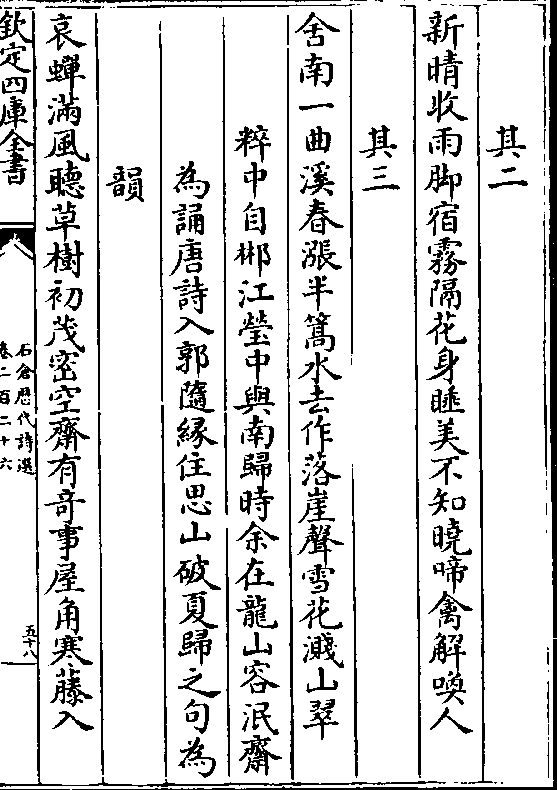 其二
新晴收雨脚宿霧隔花身睡美不知曉啼禽解喚人
其三
舍南一曲溪春漲半篙水去作落崖聲雪花濺山翠
粹中自郴江瑩中與南歸時余在龍山容泯齋
為誦唐詩入郭隨緣住思山破夏歸之句為
韻
哀蟬滿風聽草樹初茂密空齋有竒事屋角寒藤入
欽定四庫全書
石倉歴代詩選
卷二百二十六
五十八